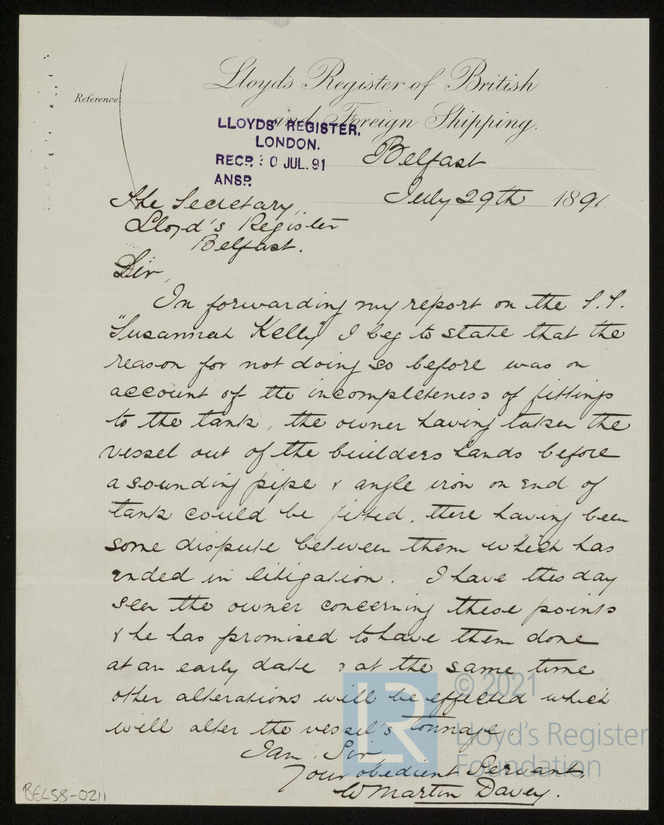 Lloyds Register of British
Reference
and Foreign Shipping.
LLOYDS' REGISTER,
LONDON.
RECD. 30 JUL. 91
ANSD.
Belfast
July 29th 1891
The Secretary
Lloyd's Register
Belfast.
Sir,
In forwarding my report on the S.S.
"Susannah Kelly" I beg to state that the
reason for not doing so before was on
account of the incompleteness of fittings
to the tank, the owner having taken the
vessel out of the builders hands before
a sounding pipe & angle iron on end of
tank could be fitted, there having been
some dispute between them which has
ended in litigation. I have this day
seen the owner concerning these points
& he has promised to have them done
at an early date & at the same time
other alterations will be effected which
will alter the vessel's tonnage.
I am, Sir
Your obedient Servant
W Martin Davey.
BEL58-0211
LR
© 2021
Lloyd's Register
Foundation